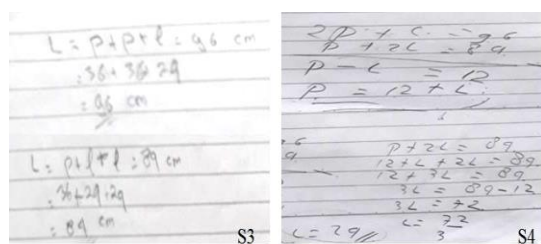 L = P + P + l = 96 cm
= 36 + 36 + 24
= 96 cm
L = P + l + l = 89 cm
= 36 + 24 + 29
= 89 cm
S3
2P + L = 96
P + 2L = 89
P - L = 12
P = 12 + L
P + 2L = 89
12 + L + 2L = 89
12 + 3L = 89
3L = 89 - 12
3L = 72
L = 72
3
L = 29
S4